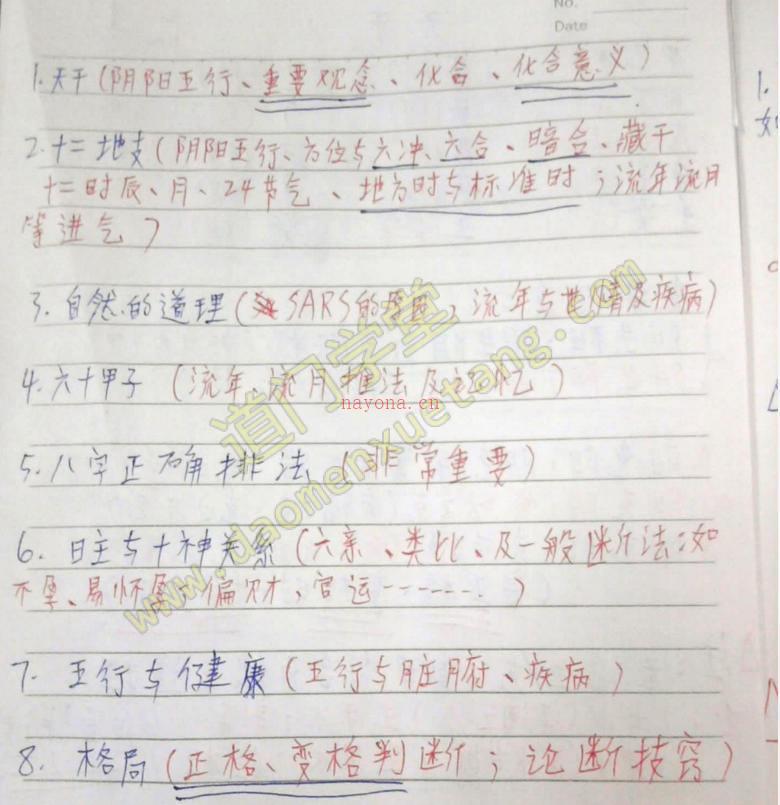 No.
Date
1.天干(阴阳五行、重要观念、化合、化合意义)
2.十二地支(阴阳五行、方位与六冲、六合、暗合、藏干
十二时辰、月、24节气、地方时与标准时;流年流月
等进气)
3.自然的道理(SARS的原因,流年与世情及疾病)
4.六十甲子(流年、流月推法及记忆)
nayona.cn
5.八字正确排法(非常重要)
6.日主与十神关系(六亲、类比、及一般断法:如
不孕、易怀孕,偏财,官运-------)
7.五行与健康(五行与脏腑、疾病)
8.格局(正格、变格判断;论断技窍)
道门学堂
www.daomenxuetang.com
1.
如